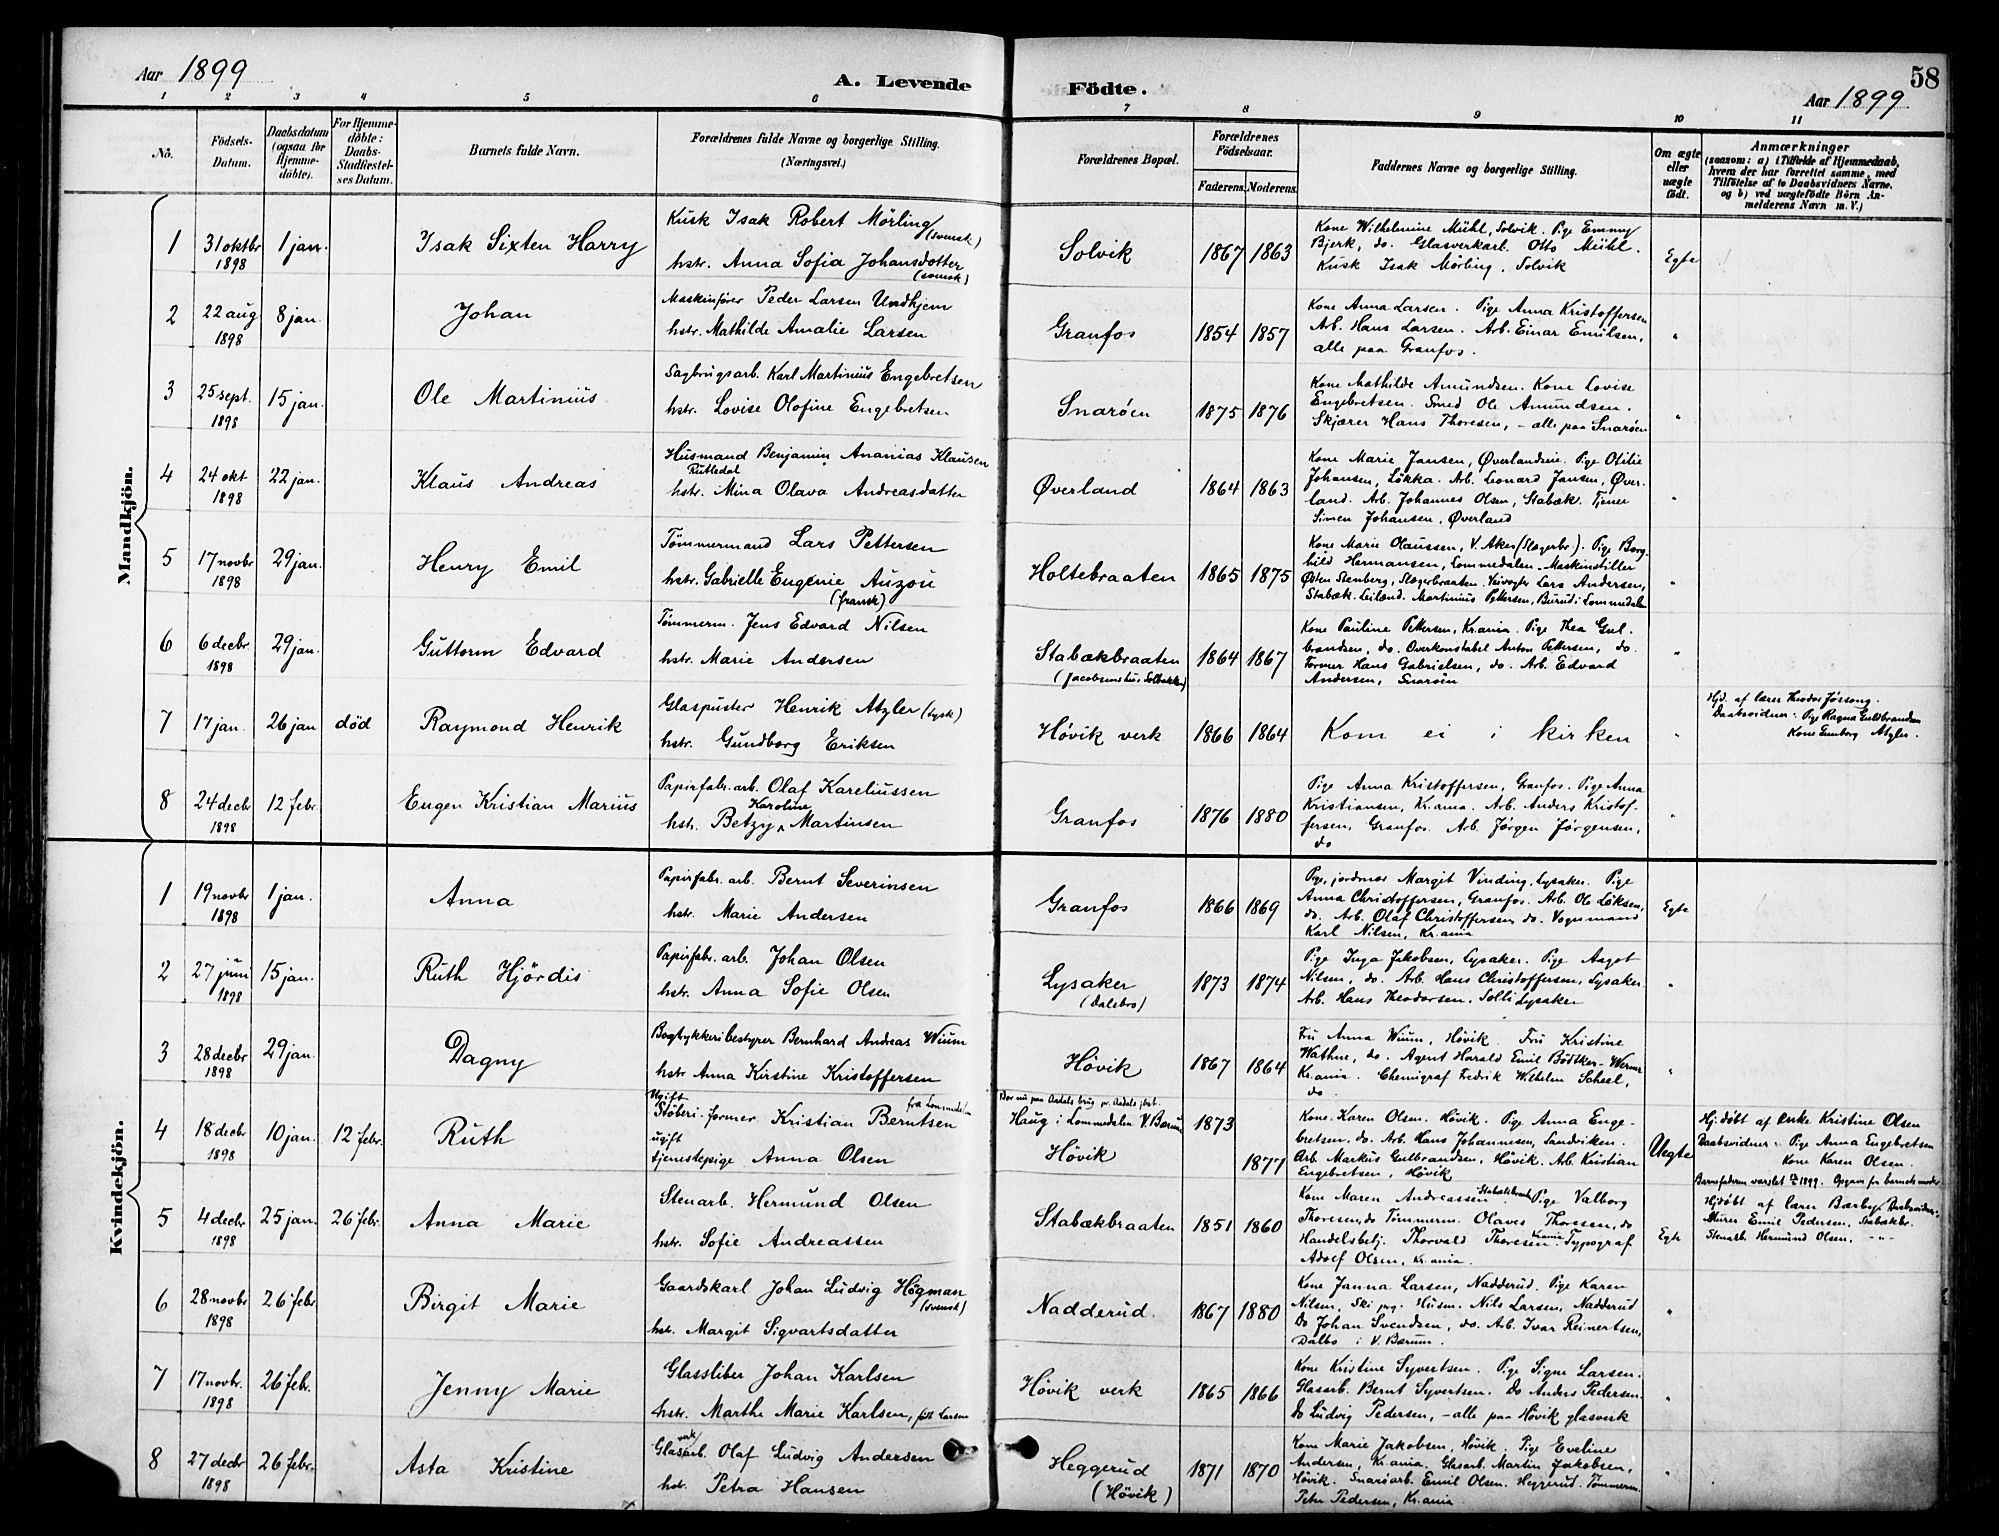 Aar 1899
A. Levende
Födte.
58
Aar 1899
1 2 3 4 5 6 7 8 9 10 11
Nö.
Födsels-
Datum.
Daabsdatum
(ogsaa for
Hjemme-
döbte).
For Hjemme-
döbte:
Daabs-
Stadfæstel-
ses Datum.
Barnets fulde Navn.
Forældrenes fulde Navne og borgerlige Stilling.
(Næringsvei.)
Forældrenes Bopæl.
Forældrenes
Födselsaar.
Faderens. Moderens.
Faddernes Navne og borgerlige Stilling.
Om ægte
eller
uægte
födt.
Anmærkninger
(saasom: a) i Tilfælde af Hjemmedaab,
hvem der har forrettet samme, med
Tilföielse af to Daabsvidners Navne.
og b) ved uægtefödte Börn An-
melderens Navn m. V.)
Mandkjön.
1
31 oktbr
1898
1 jan.
Isak Sixten Harry
Kusk Isak Robert Mörling
(svensk)
hstr. Anna Sofia Johansdotter
(svensk)
Solvik
1867 1863
Kone Wilhelmine Mühl, Solvik. Pige Emmy
Bjerk, do. Glasverkarb. Otto Mühl.
Kusk Isak Mörling, Solvik
Egte
2
22 aug
1898
8 jan.
Johan
Maskinfører Peder Larsen Undhjem
hstr. Mathilde Amalie Larsen
Granfos
1854 1857
Kone Anna Larsen. Pige Anna Kristoffersen
Arb. Hans Larsen. Arb. Einar Emilsen,
alle paa Granfos.
"
3
25 sept.
1898
15 jan.
Ole Martinius
Sagbrugsarb. Karl Martinius Engebretsen
hstr. Lovise Olofine Engebretsen
Snarøen
1875 1876
Kone Mathilde Amundsen. Kone Lovise
Engebretsen. Smed Ole Amundsen.
Skjærer Hans Thoresen, - alle paa Snarøen
"
4
24 okt
1898
22 jan.
Klaus Andreas
Husmand Benjamin Ananias Klausen
Rutledal
hstr. Mina Olava Andreasdatter
Øverland
1864 1863
Kone Marie Jansen, Øverlandseie. Pige Otilie
Johansen, Løkka. Arb. Leonard Jansen, Øver-
land. Arb. Johannes Olsen, Stabæk. Tjener
Simen Johansen, Øverland
"
5
17 novbr
1898
29 jan.
Henry Emil
Tømmermand Lars Pettersen
hstr. Gabrielle Eugenie Auzou
(fransk)
Holtebraaten
1865 1875
Kone Marie Olaussen, V. Aker (Slagerbr). Pige Borg-
hild Hermansen, Lommedalen. Maskinstiller
Østen Stenberg, Slagerbraaten. Veivogter Lars Andersen,
Stabæk. Leilænd. Martinius Pettersen, Burud i Lommedalen
"
6
6 decbr
1898
29 jan.
Guttorm Edvard
Tømmerm. Jens Edvard Nilsen
hstr. Marie Andersen
Stabækbraaten
(Jacobsens hus Solbakken)
1864 1867
Kone Pauline Pettersen, Kr.ania. Pige Thea Gul-
brandsen, do. Overkonstabel Anton Pettersen, do.
Former Hans Gabrielsen, do. Arb. Edvard
Andersen, Snarøen
"
7
17 jan.
26 jan
død
Raymond Henrik
Glaspuster Henrik Atzler (tysk)
hstr. Gundborg Eriksen
Høvik verk
1866 1864
Kom ei i kirken
"
Hjd. af lærer Theodor Jössong.
Daabsvidner: Pige Ragna Guldbrandsen
Kone Gunborg Atzler.
8
24 decbr
1898
12 febr.
Eugen Kristian Marius
Papirfabr. arb. Olaf Kareliussen
Karoline
hstr. Betzy Martinsen
Granfos
1876 1880
Pige Anna Kristoffersen, Granfos. Pige Anna
Kristiansen, Kr.ania. Arb. Anders Kristof-
fersen, Granfos. Arb. Jørgen Jørgensen,
do
"
Kvindekjön.
1
19 novbr
1898
1 jan.
Anna
Papirfabr. arb. Bernt Severinsen
hstr. Marie Andersen
Granfos
1866 1869
Pige, jordmor Margit Vinding, Lysaker. Pige
Anna Christoffersen, Granfos. Arb. Ole Löksen,
do. Arb. Olaf Christoffersen, do. Vognmand
Karl Nilsen, Kr.ania
Egte
2
27 juni
1898
15 jan.
Ruth Hjördis
Papirfabr. arb. Johan Olsen
hstr. Anna Sofie Olsen
Lysaker
(Dalebro)
1873 1874
Pige Inga Jakobsen, Lysaker. Pige Asgot
Nilsen, do. Arb. Hans Christoffersen, Lysaker
Arb. Hans Theodorsen. Solli Lysaker
"
3
28 decbr
1898
29 jan.
Dagny
Bogtykkeribestyrer Bernhard Andreas Wium
hstr Anna Kirstine Kristoffersen
Høvik
1867 1864
Fru Anna Wium, Høvik. Fru Kristine
Wathne, do. Agent Harald Emil Bödtker-Werner
Kr.ania. Chemigraf Fredrik Wilhelm Scheel,
do.
"
4
18 decbr
1898
10 jan.
12 febr.
Ruth
Ugift
fra Lommedalen
Støberi-former Kristian Berntsen
ugift
tjenestepige Anna Olsen
Bor nu paa Aadals brug pr. Aadals jbst.
Haug i Lommedalen V. Bærum
Høvik
1873
1877
Kone Karen Olsen. Høvik. Pige Anna Enge-
bretsen. do. Arb. Hans Johannesen, Sandviken.
Arb. Markus Gulbrandsen, Høvik. Arb. Kristian
Engebretsen, Høvik
Uegte
Hj. døbt af enke Kristine Olsen
Daabsvidner: Pige Anna Engebretsen
Kone Karen Olsen.
Barnefaderen varslet 1899. Opgave fra barnets moder
5
4 decbr
1898
25 jan.
26 febr.
Anna Marie
Stenarb. Hermund Olsen
hstr. Sofie Andreassen
Stabækbraaten
1851 1860
Kone Maren Andreassen Stabækbraat. Pige Valborg
Thoresen, do Tømmerm. Olaves Thoresen, do
Handelsbetj. Thorvald Thoresen Kr.ania. Typograf
Adolf Olsen, Kr.ania.
Egte
Hjdøbt af lærer Barby. Daabsvidner:
Murer Emil Pedersen, Stabækbr.
Stenarb. Hermund Olsen, -"-
6
28 novbr
1898
26 febr.
Birgit Marie
Gaardskarl Johan Ludvig Högman
(svensk)
hstr. Margit Sigvartsdatter
Nadderud.
1867 1880
Kone Janna Larsen, Nadderud. Pige Karen
Nilsen, Ski prg. Husm. Nils Larsen, Nadderud
Do Johan Svendsen, do. Arb. Ivar Reinertsen,
Dalbo i V. Bærum.
"
7
17 novbr.
1898
26 febr.
Jenny Marie
Glassliber Johan Karlsen
hstr. Marthe Marie Karlsen, født Larsen
Høvik verk
1865 1866
Kone Kristine Syvertsen. Pige Signe Larsen.
Glasarb. Bernt Syvertsen. Do Anders Pedersen.
Do Ludvig Pedersen, - alle paa Høvik glasverk
"
8
27 decbr
1898
26 febr.
Asta Kristine
verk
Glasarb. Olaf Ludvig Andersen
hstr. Petra Hansen
Heggerud
(Høvik)
1871 1870
Kone Marie Jakobsen, Høvik. Pige Eveline
Andersen, Kr.ania. Glasarb. Martin Jakobsen,
Høvik. Snarøarb. Emil Olsen, Heggerud. Tømmerm.
Peter Pedersen, Kr.ania.
"